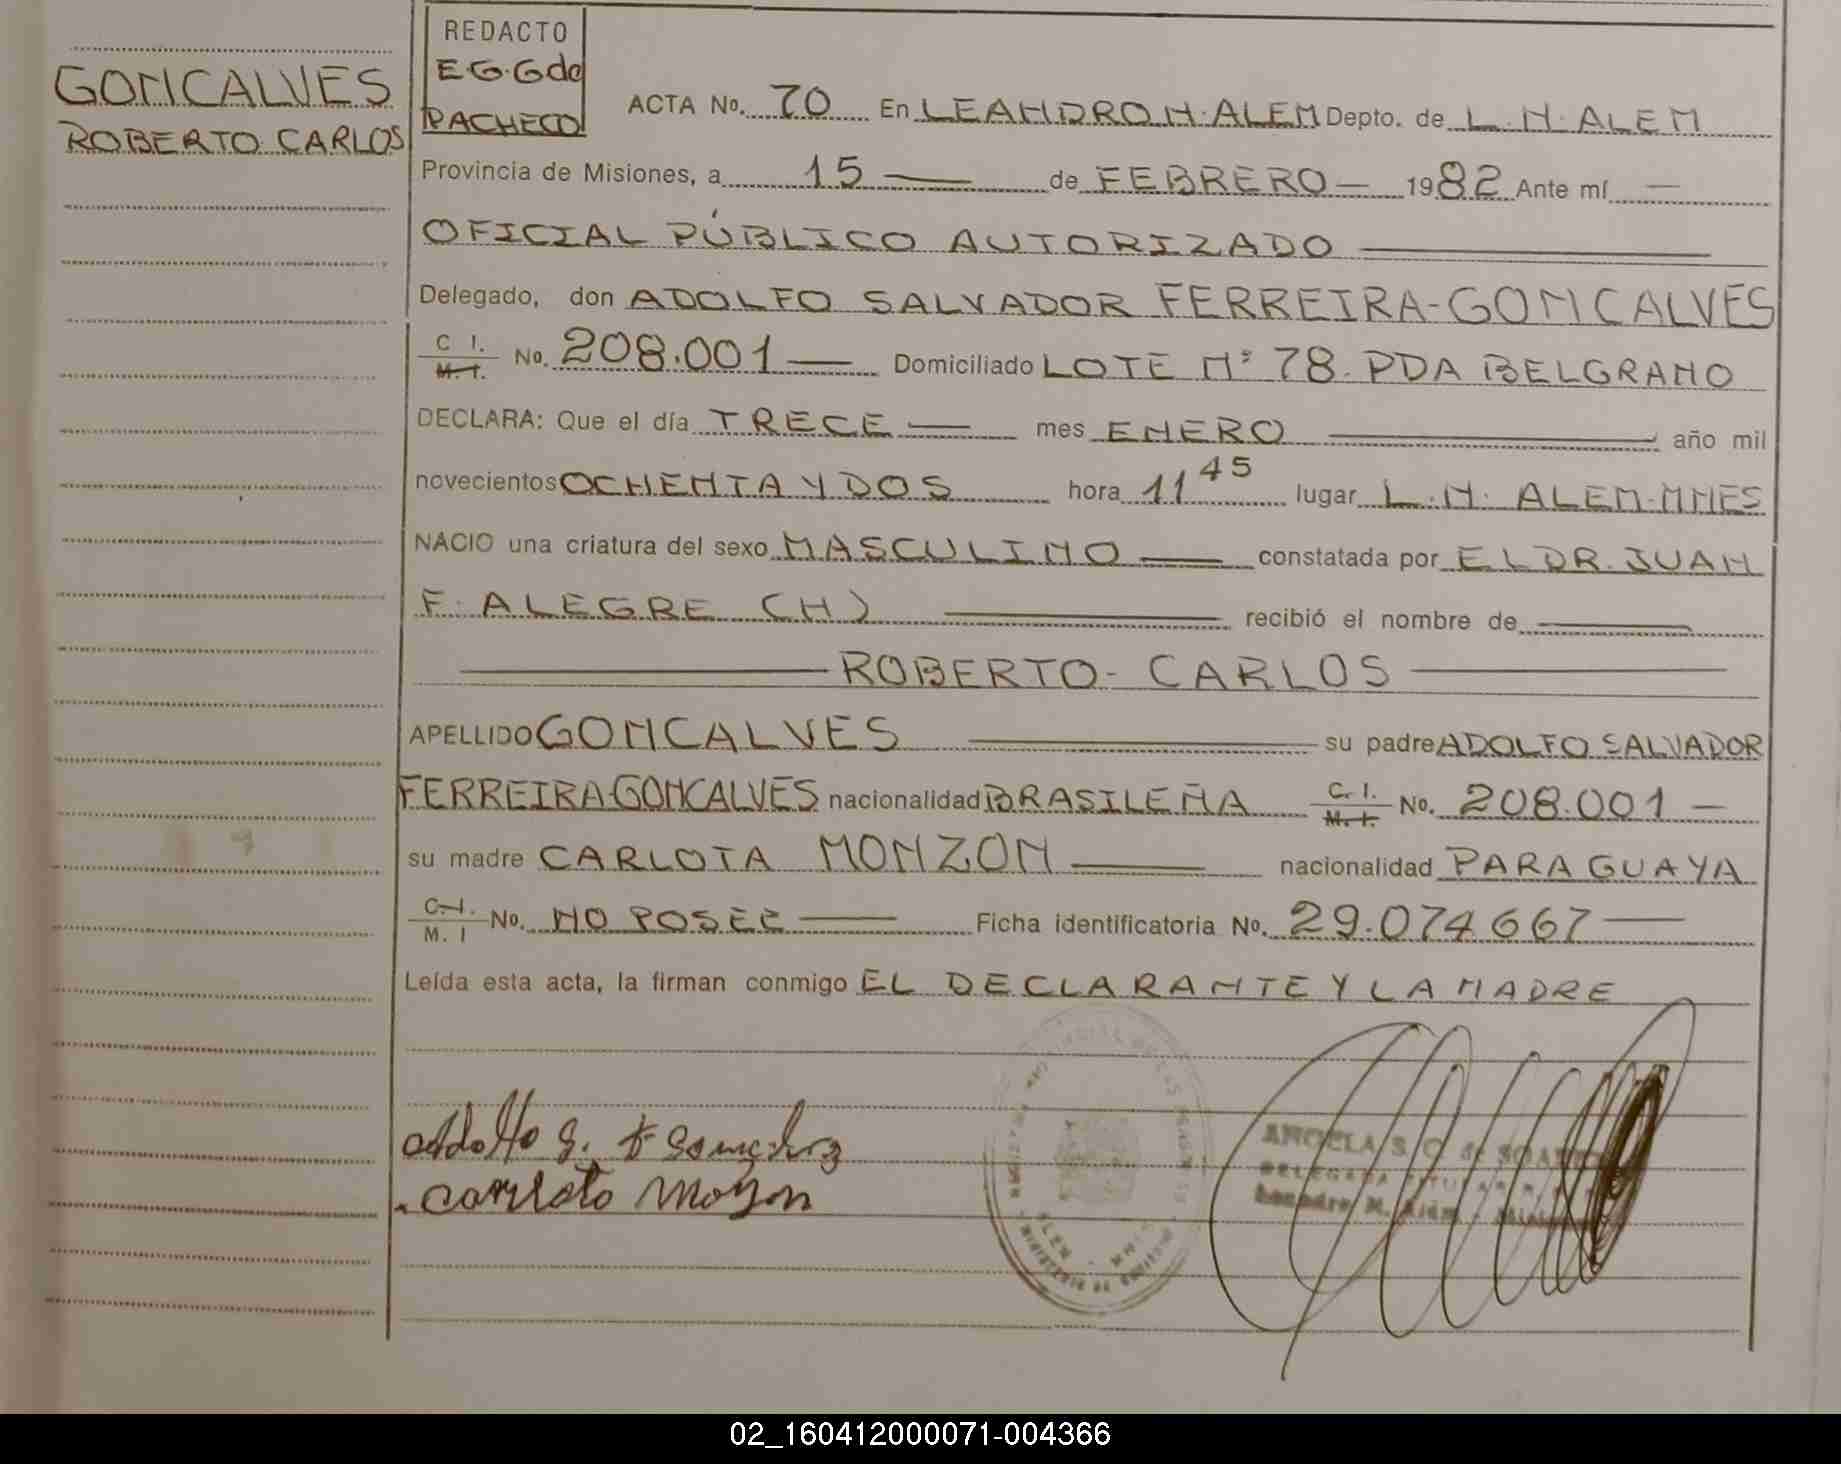 GONCALVES
ROBERTO CARLOS
REDACTO
E.G.G de
PACHECO
ACTA No. 70 En LEANDRO N. ALEM Depto. de L. N. ALEM
Provincia de Misiones, a 15 — de FEBRERO — 1982 Ante mí —
OFICIAL PÚBLICO AUTORIZADO —
Delegado, don ADOLFO SALVADOR FERREIRA-GONCALVES
C I. / M. I. No. 208.001 — Domiciliado LOTE N° 78. PDA BELGRANO
DECLARA: Que el día TRECE — mes ENERO — año mil
novecientos OCHENTA Y DOS hora 11 45 lugar L. N. ALEM-MNES
NACIO una criatura del sexo MASCULINO — constatada por EL DR. JUAN
F. ALEGRE (H) — recibió el nombre de —
— ROBERTO - CARLOS —
APELLIDO GONCALVES — su padre ADOLFO SALVADOR
FERREIRA-GONCALVES nacionalidad BRASILEÑA C. I. / M. I. No. 208.001 —
su madre CARLOTA MONZON — nacionalidad PARAGUAYA
C. I. / M. I No. NO POSEE — Ficha identificatoria No. 29.074667 —
Leída esta acta, la firman conmigo EL DECLARANTE Y LA MADRE
Adolfo S. F Goncalvez
Carlota Monzon
ANGELA S. C. de
DELEGADA TITULAR
Leandro N. Alem -
02_160412000071-004366